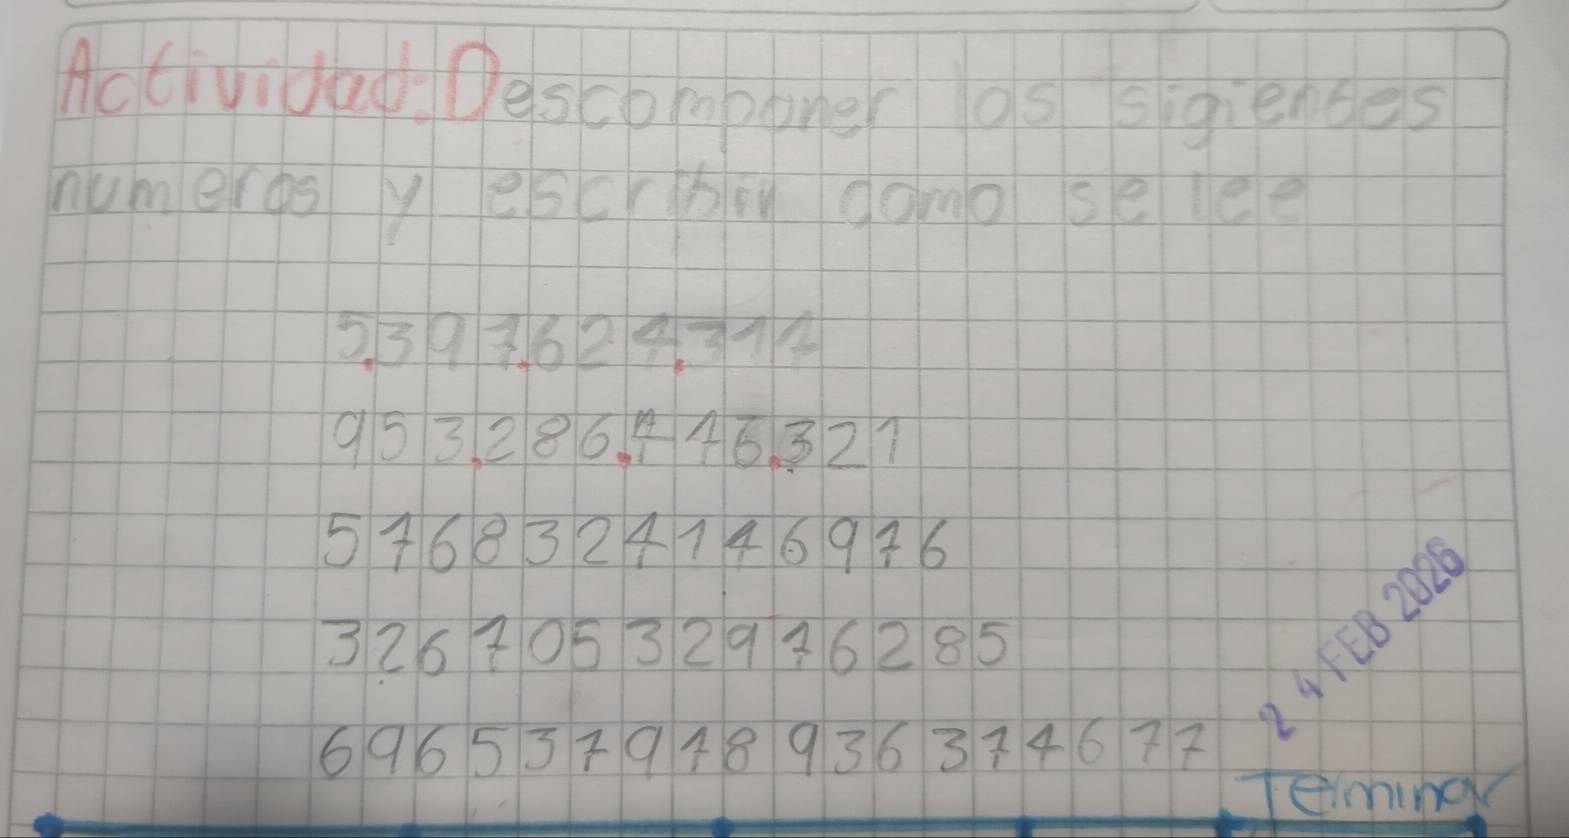 Actividad: Descomponer los sigientes
numeros y escribir como se lee
5.397.624.317
5768324146976
32670532976285
696537978936374677
24 FEB 2026
Terminar